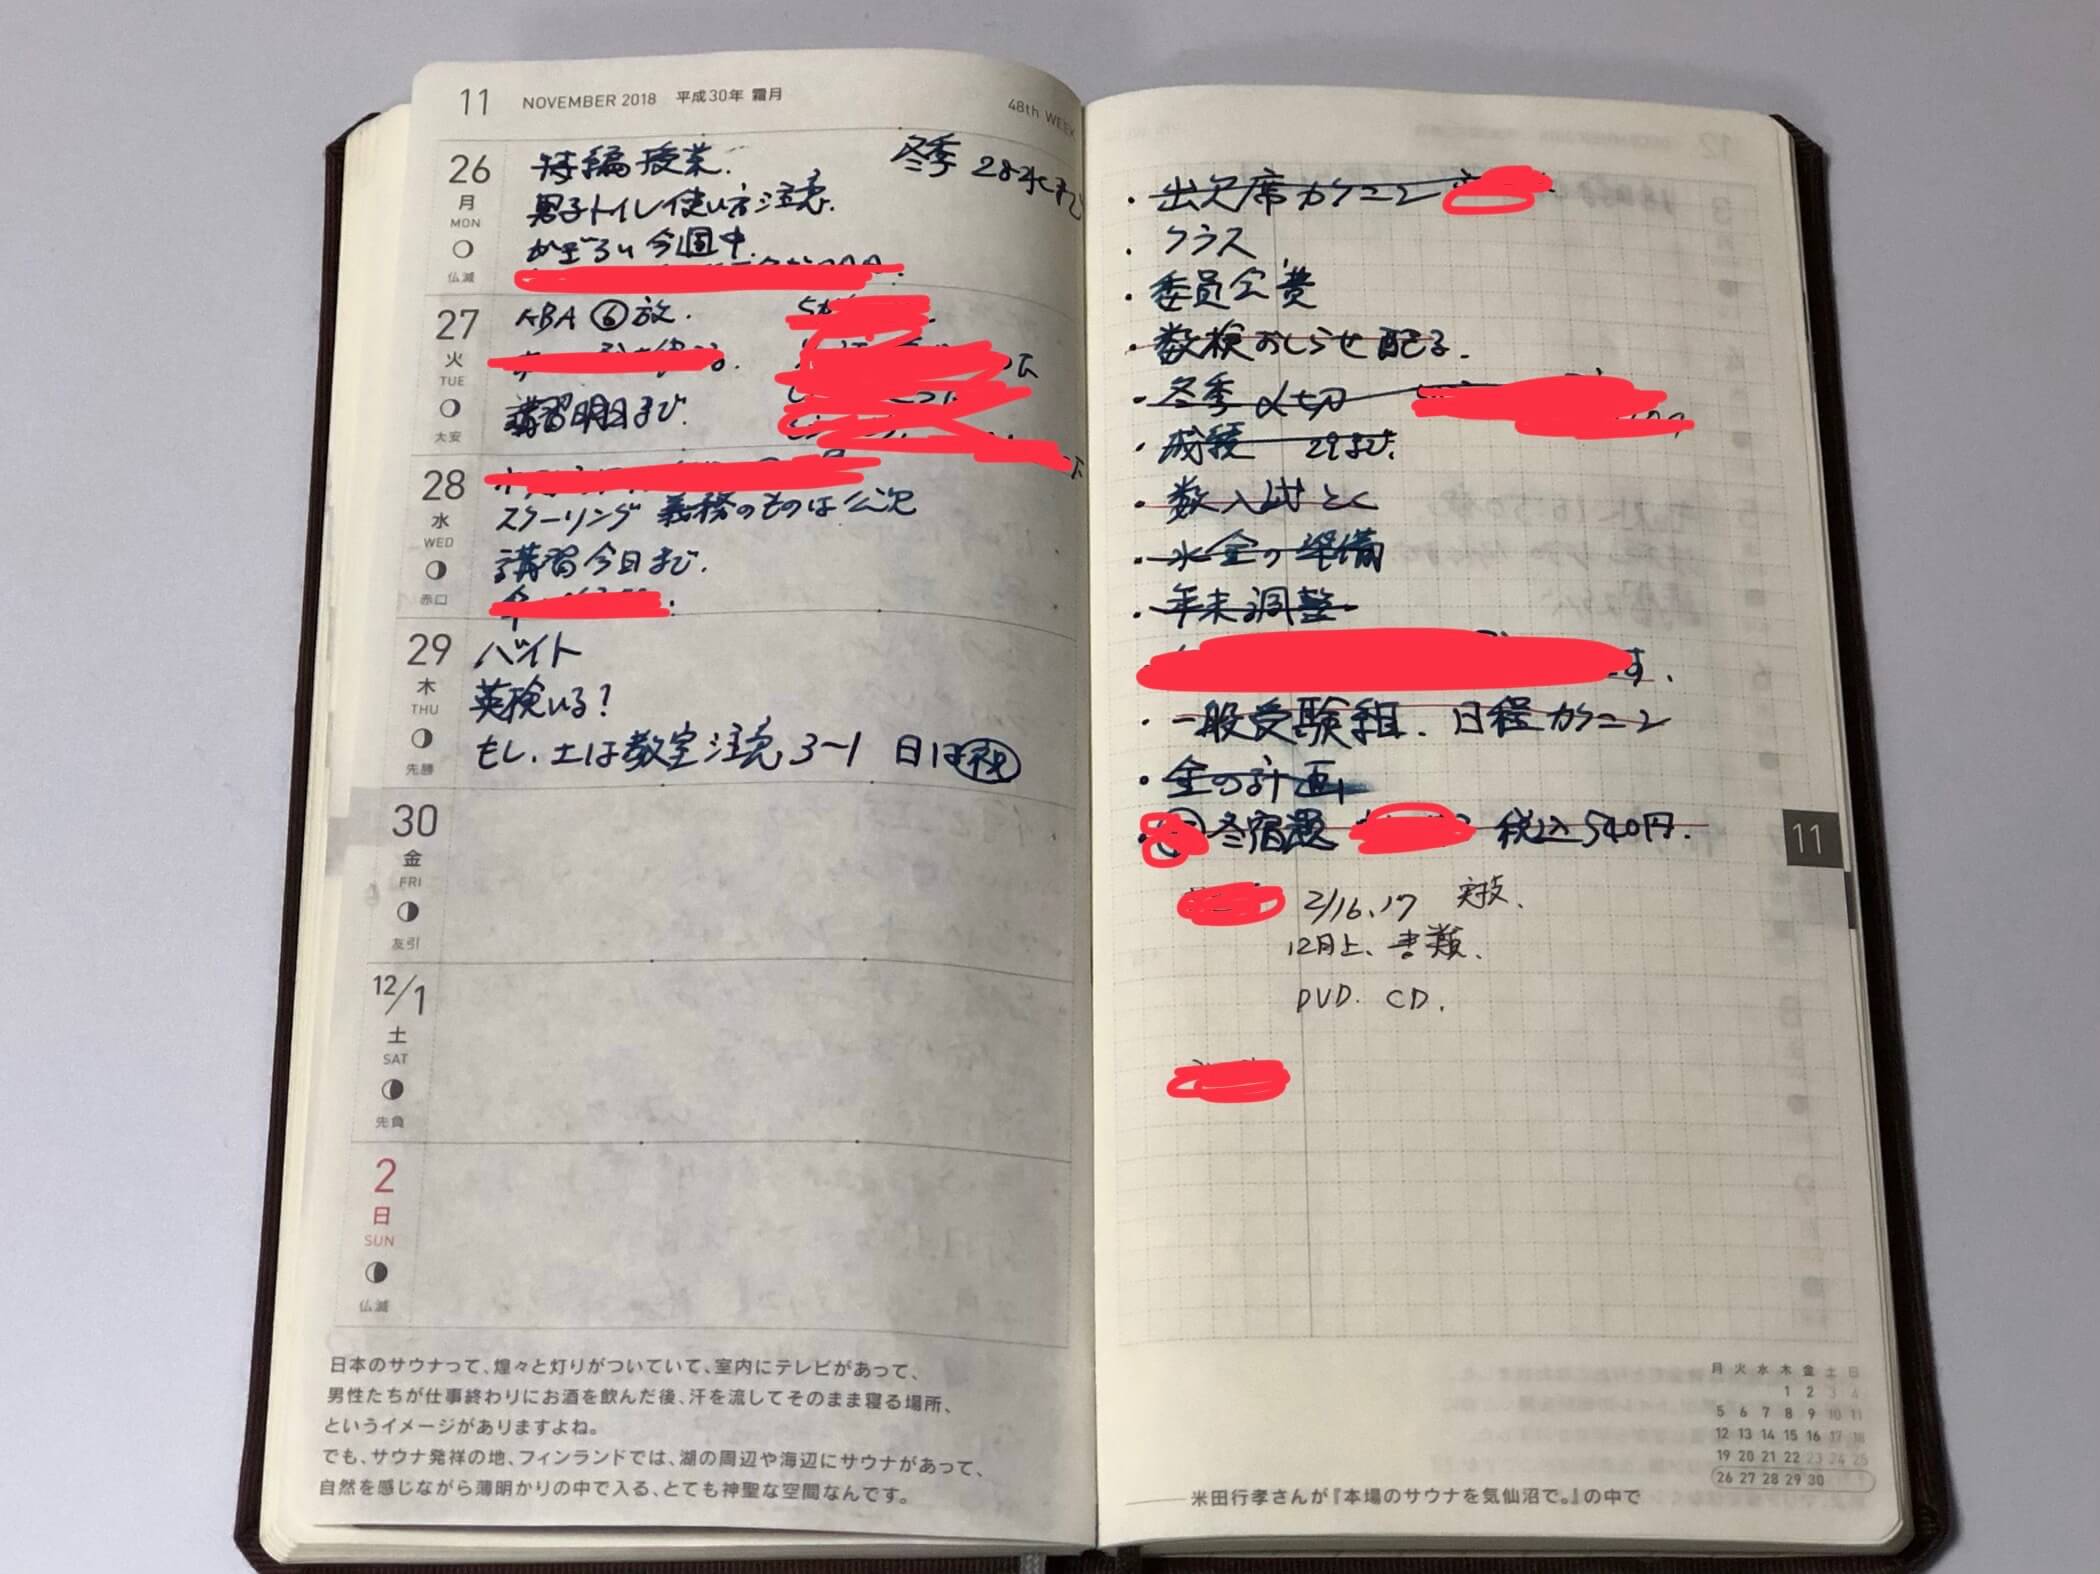 11 NOVEMBER 2018 平成30年 霜月
48th WEEK
26
月
MON
仏滅
特編授業.
冬季 28水まで
男子トイレ使い方注意.
今週中.
27
火
TUE
大安
KBA ⑥放.
講習明日まで.
28
水
WED
赤口
スクーリング 義務のものは公欠
講習今日まで.
29
木
THU
先勝
バイト
英検いる?
もし、土は教室注意 3〜1 日は祝
30
金
FRI
友引
12/1
土
SAT
先負
2
日
SUN
仏滅
日本のサウナって、煌々と灯りがついていて、室内にテレビがあって、
男性たちが仕事終わりにお酒を飲んだ後、汗を流してそのまま寝る場所、
というイメージがありますよね。
でも、サウナ発祥の地、フィンランドでは、湖の周辺や海辺にサウナがあって、
自然を感じながら薄明かりの中で入る、とても神聖な空間なんです。
・出欠席カクニン
・クラス
・委員会費
・数検おしらせ配る.
・冬季〆切
・成績 29まで.
・数入試とく
・水金の準備
・年末調整
す.
・一般受験組. 日程カクニン
・金の計画
・冬宿題 税込540円.
2/16.17 実技.
12月上、書類.
DVD. CD.
11
月 火 水 木 金 土 日
1 2 3 4
5 6 7 8 9 10 11
12 13 14 15 16 17 18
19 20 21 22 23 24 25
26 27 28 29 30
米田行孝さんが『本場のサウナを気仙沼で。』の中で